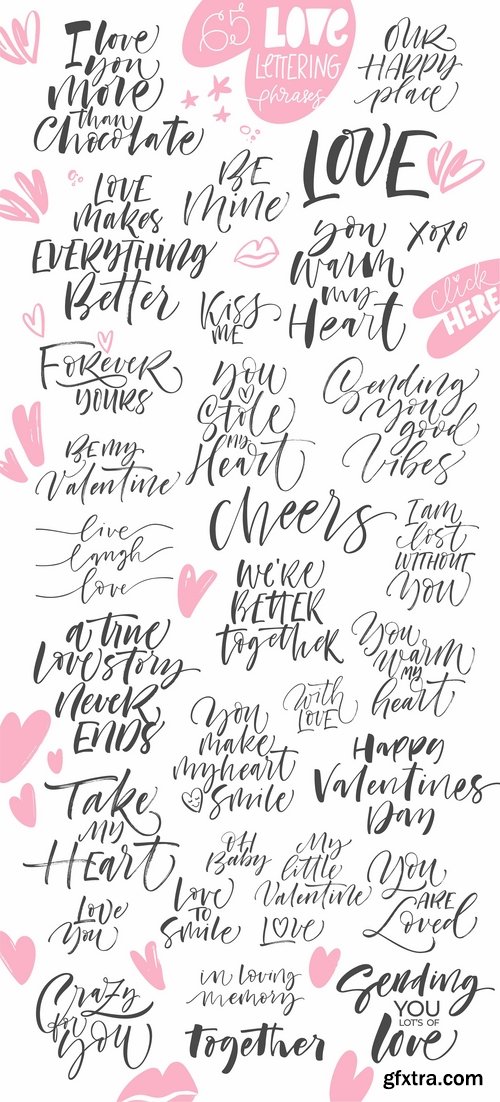 I love
you
more
than
Chocolate
65
LOVE
LETTERING
phrases
OUR
HAPPY
place
BE
Mine
LOVE
LOVE
Makes
EVERYTHING
Better
you
warm
my
Heart
XOXO
Kiss
ME
click
HERE
Forever
yours
You
Stole
my
Heart
Sending
you
good
Vibes
Be my
Valentine
Cheers
I am
lost
WITHOUT
You
live
laugh
love
We're
BETTER
together
a true
love story
never
ENDS
You
warm
my
heart
with
LOVE
You
make
my heart
smile
Happy
Valentines
Day
Take
My
Heart
OH
Baby
My
little
Valentine
You
ARE
Loved
Love
You
Love
TO
Smile
LOVE
Crazy
for
YOU
in loving
memory
Together
Sending
YOU
LOT'S OF
love
gfxtra.com